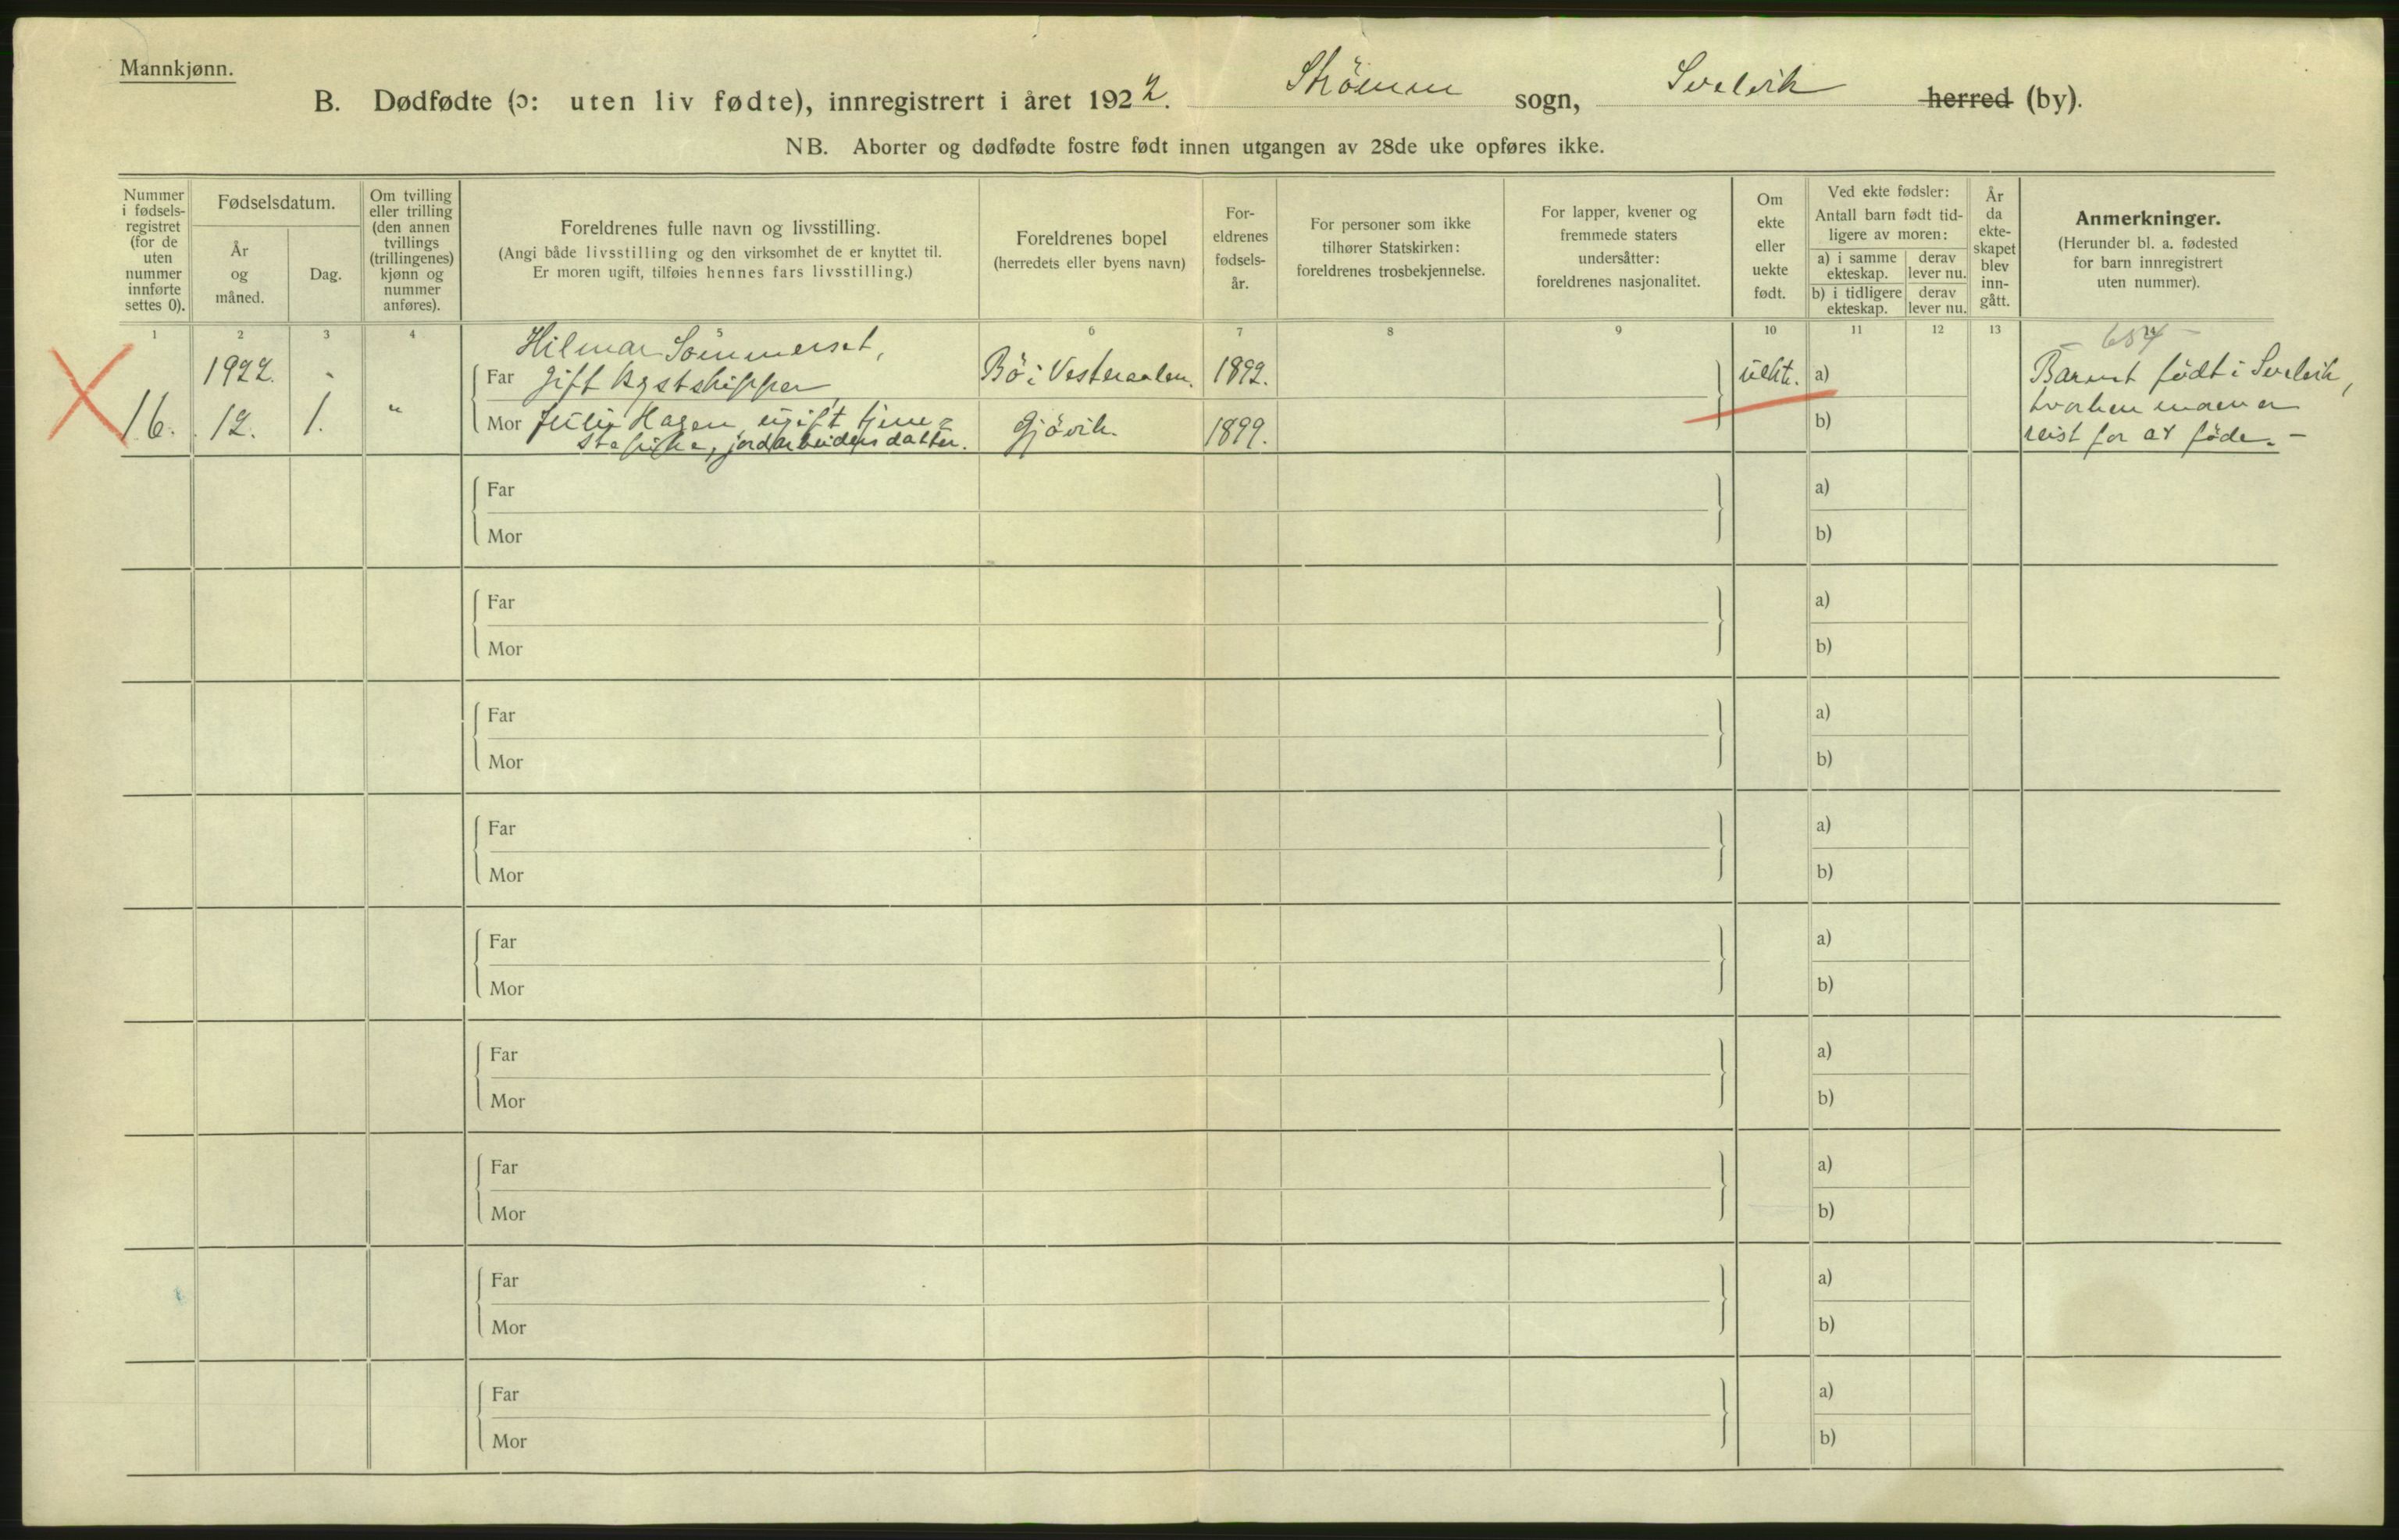 Mannkjønn.
B. Dødfødte (ɔ: uten liv fødte), innregistrert i året 1922. Strömm sogn, Svelvik herred (by).
NB. Aborter og dødfødte fostre født innen utgangen av 28de uke opføres ikke.
Nummer i fødsels-registret (for de uten nummer innførte settes 0).
Fødselsdatum.
År og måned.
Dag.
Om tvilling eller trilling (den annen tvillings (trillingenes) kjønn og nummer anføres).
Foreldrenes fulle navn og livsstilling.
(Angi både livsstilling og den virksomhet de er knyttet til.
Er moren ugift, tilføies hennes fars livsstilling.)
Foreldrenes bopel
(herredets eller byens navn)
For-eldrenes fødsels-år.
For personer som ikke tilhører Statskirken: foreldrenes trosbekjennelse.
For lapper, kvener og fremmede staters undersåtter: foreldrenes nasjonalitet.
Om ekte eller uekte født.
Ved ekte fødsler:
Antall barn født tid-ligere av moren:
a) i samme ekteskap.
derav lever nu.
b) i tidligere ekteskap.
derav lever nu.
År da ekte-skapet blev inn-gått.
Anmerkninger.
(Herunder bl. a. fødested for barn innregistrert uten nummer).
1 2 3 4 5 6 7 8 9 10 11 12 13
Hilmar Sömmerset,
1922. Far gift kystskipper Bö i Vesteraalen. 1892. uekte. a) Barnet födt i Svelvik,
16. 12. 1. " Mor Julie Hagen, ugift tjene= Gjövik. 1899. b) hvorhen moren er
stepike, jordarbeiders datter. reist for at föde. –
Far a)
Mor b)
Far a)
Mor b)
Far a)
Mor b)
Far a)
Mor b)
Far a)
Mor b)
Far a)
Mor b)
Far a)
Mor b)
Far a)
Mor b)
Far a)
Mor b)